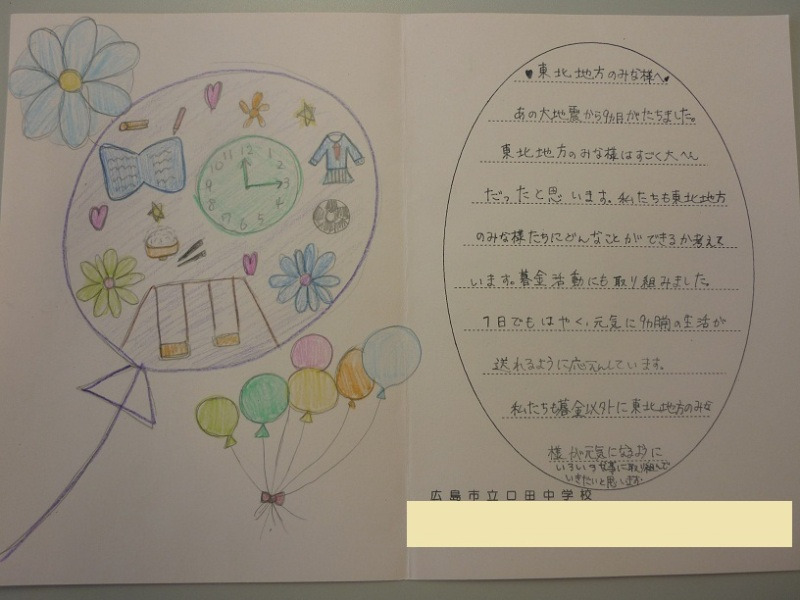 11 12 1
10 2
9 3
8 4
7 6 5
♥東北地方のみな様へ♥
あの大地震から9カ月がたちました。
東北地方のみな様はすごく大へん
だったと思います。私たちも東北地方
のみな様たちにどんなことができるか考えて
います。募金活動にも取り組みました。
1日でもはやく、元気に9カ月前の生活が
送れるように応えんしています。
私たちも募金以外に東北地方のみな
様が元気になるように
いろいろな事に取り組んで
いきたいと思います。
広島市立口田中学校